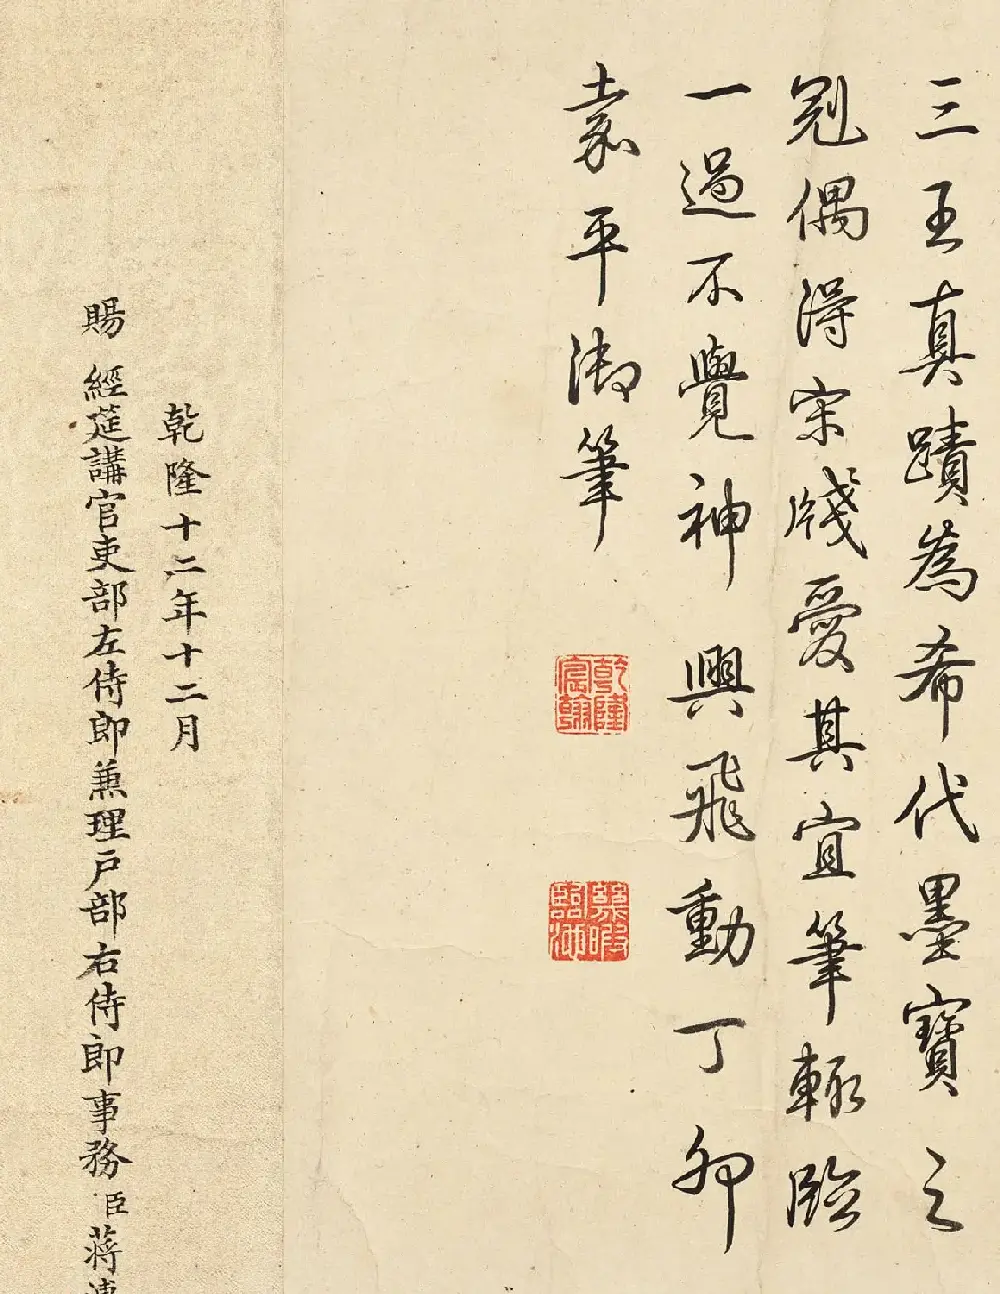 三王真蹟為希代墨寶之
冠偶得宋牋愛其宜筆輙臨
一過不覺神興飛動丁卯
嘉平御筆
乾隆宸翰
幾暇臨池
乾隆十二年十二月
賜 經筵講官吏部左侍郎兼理戶部右侍郎事務臣蔣溥